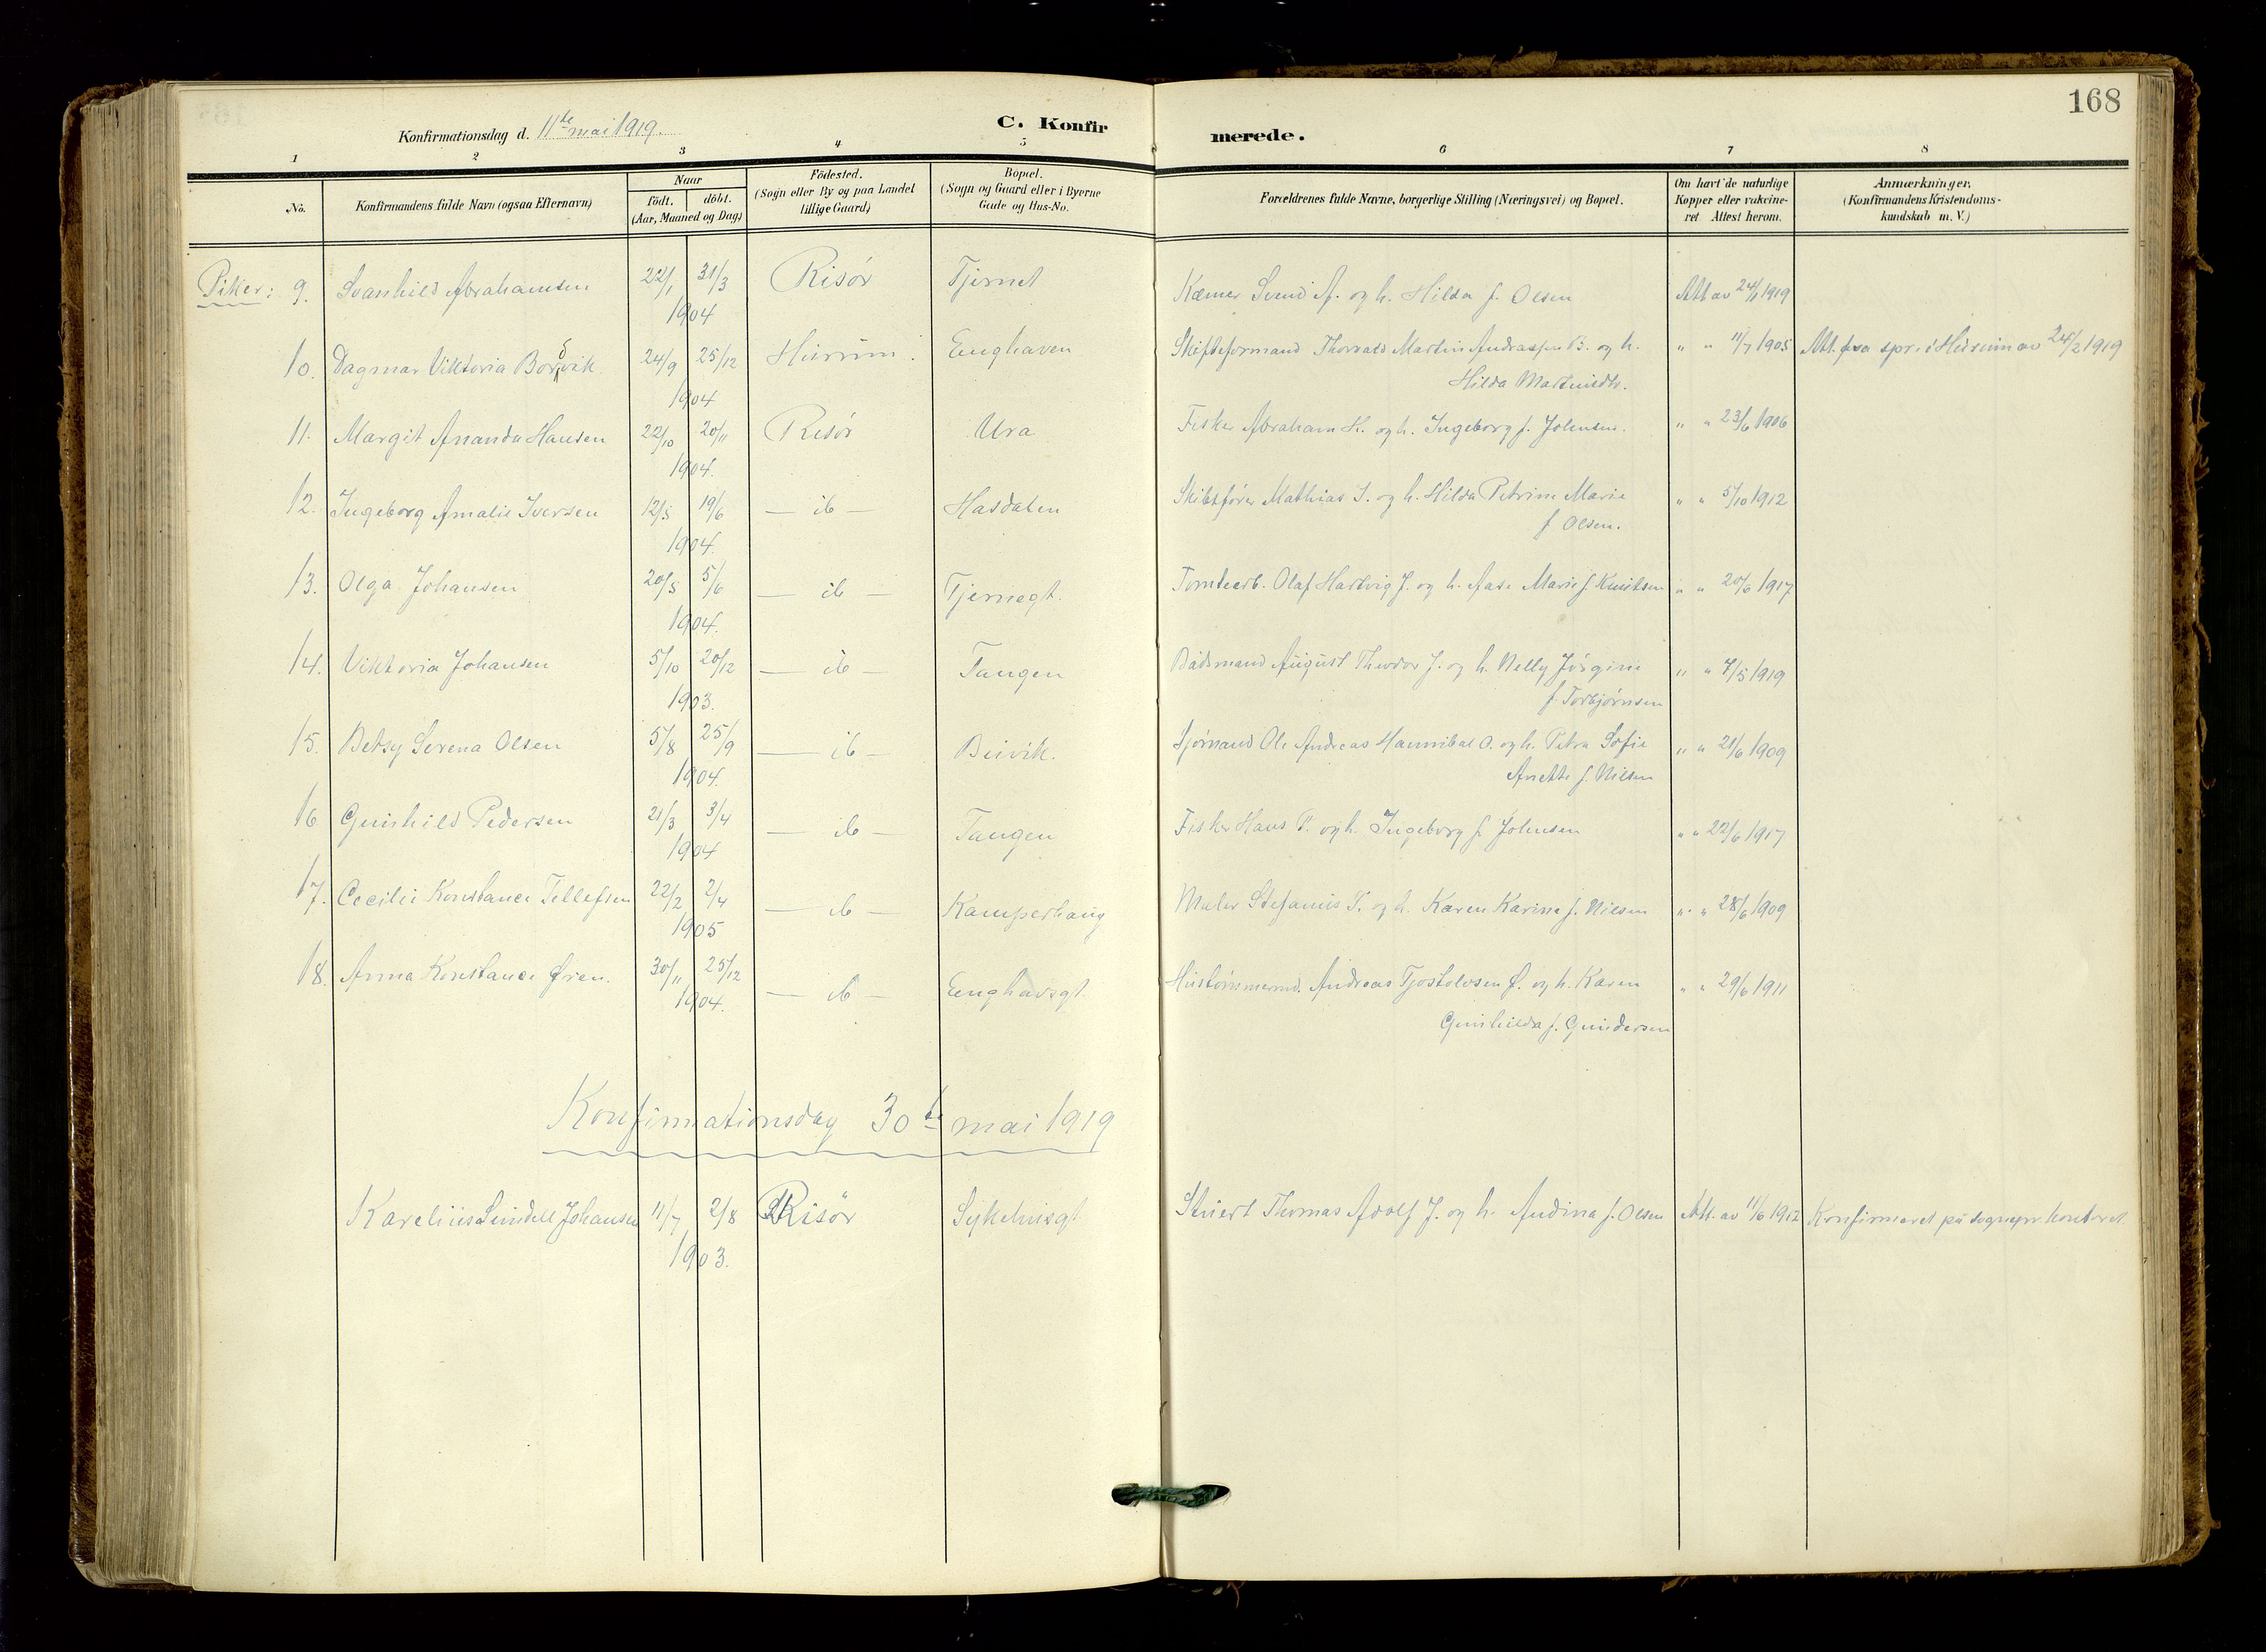 168
Konfirmationsdag d. 11te mai 1919.
C. Konfirmerede.
1 2 3 4 5 6 7 8
No.
Konfirmandens fulde Navn (ogsaa Efternavn)
Naar
født. døbt.
(Aar, Maaned og Dag)
Fødested.
(Sogn eller By og paa Landet
tillige Gaard)
Bopæl.
(Sogn og Gaard eller i Byerne
Gade og Hus-No.
Forældrenes fulde Navne, borgerlige Stilling (Næringsvei) og Bopæl.
Om havt de naturlige
Kopper eller vakcine-
ret Attest herom.
Anmærkninger,
(Konfirmandens Kristendoms-
kundskab m. V.)
Piker: 9. Svanhild Abrahamsen 22/1 31/3 Risör Tjernet Kæmner Svend A. og h. Hilda f. Olsen Att av 24/1 1919
1904
10. Dagmar Viktoria Bordvik. 24/9 25/12 Hurum. Enghaven Skifteformand Thorvald Martin Andreassen B. og h. " " 11/7 1905 Att. fra spr. i Hurum av 24/2 1919
1904 Hilda Martinsdtr.
11. Margit Amanda Hansen 22/10 20/11 Risör Ura Fisker Abraham H. og h. Ingeborg f. Johnsen. " " 23/6 1906
1904.
12. Ingeborg Amalie Iversen 12/5 19/6 — ib — Hasdalen Skibsfører Mathias I. og h. Hilda Petrine Marie " " 5/10 1912
1904. f Olsen.
13. Olga Johansen 20/5 5/6 — ib — Tjernegt. Tomtearb. Olaf Hartvig J. og h. Aase Marie f. Knutsen " " 20/6 1917
1904.
14. Viktoria Johansen 5/10 20/12 — ib — Tangen Baadsmand August Theodor J. og h. Nelly Jörgine " " 7/5 1919
1903. f. Torbjørnsen
15. Betsy Serena Olsen 5/8 25/9 — ib — Buvik. Sjømand Ole Andreas Hannibal O. og h. Petra Sofie " " 21/6 1909
1904. Anette f. Nilsen
16 Gunhild Pedersen 21/3 3/4 — ib — Tangen Fisker Hans P. og h. Ingeborg f. Johnsen " " 22/6 1917
1904
17. Cecilie Konstance Tellefsen 22/2 2/4 — ib — Kamperhaug Maler Stefanus T. og h. Karen Karine f. Nilsen " " 28/6 1909
1905
18. Anna Konstance Øien. 30/11 25/12 — ib — Enghavsgt. Hustømmermd. Andreas Tjostolvsen Ø. og h. Karen " " 29/6 1911
1904. Gunhilda f. Gundersen
Konfirmationsdag 30te mai 1919
Karelius Lundell Johansen 11/7 2/8 Risör Sykehusgt Stuert Thomas Adolf J. og h. Andina f. Olsen Att. av 11/6 1912 Konfirmeret på sognepr. kontoret.
1903.